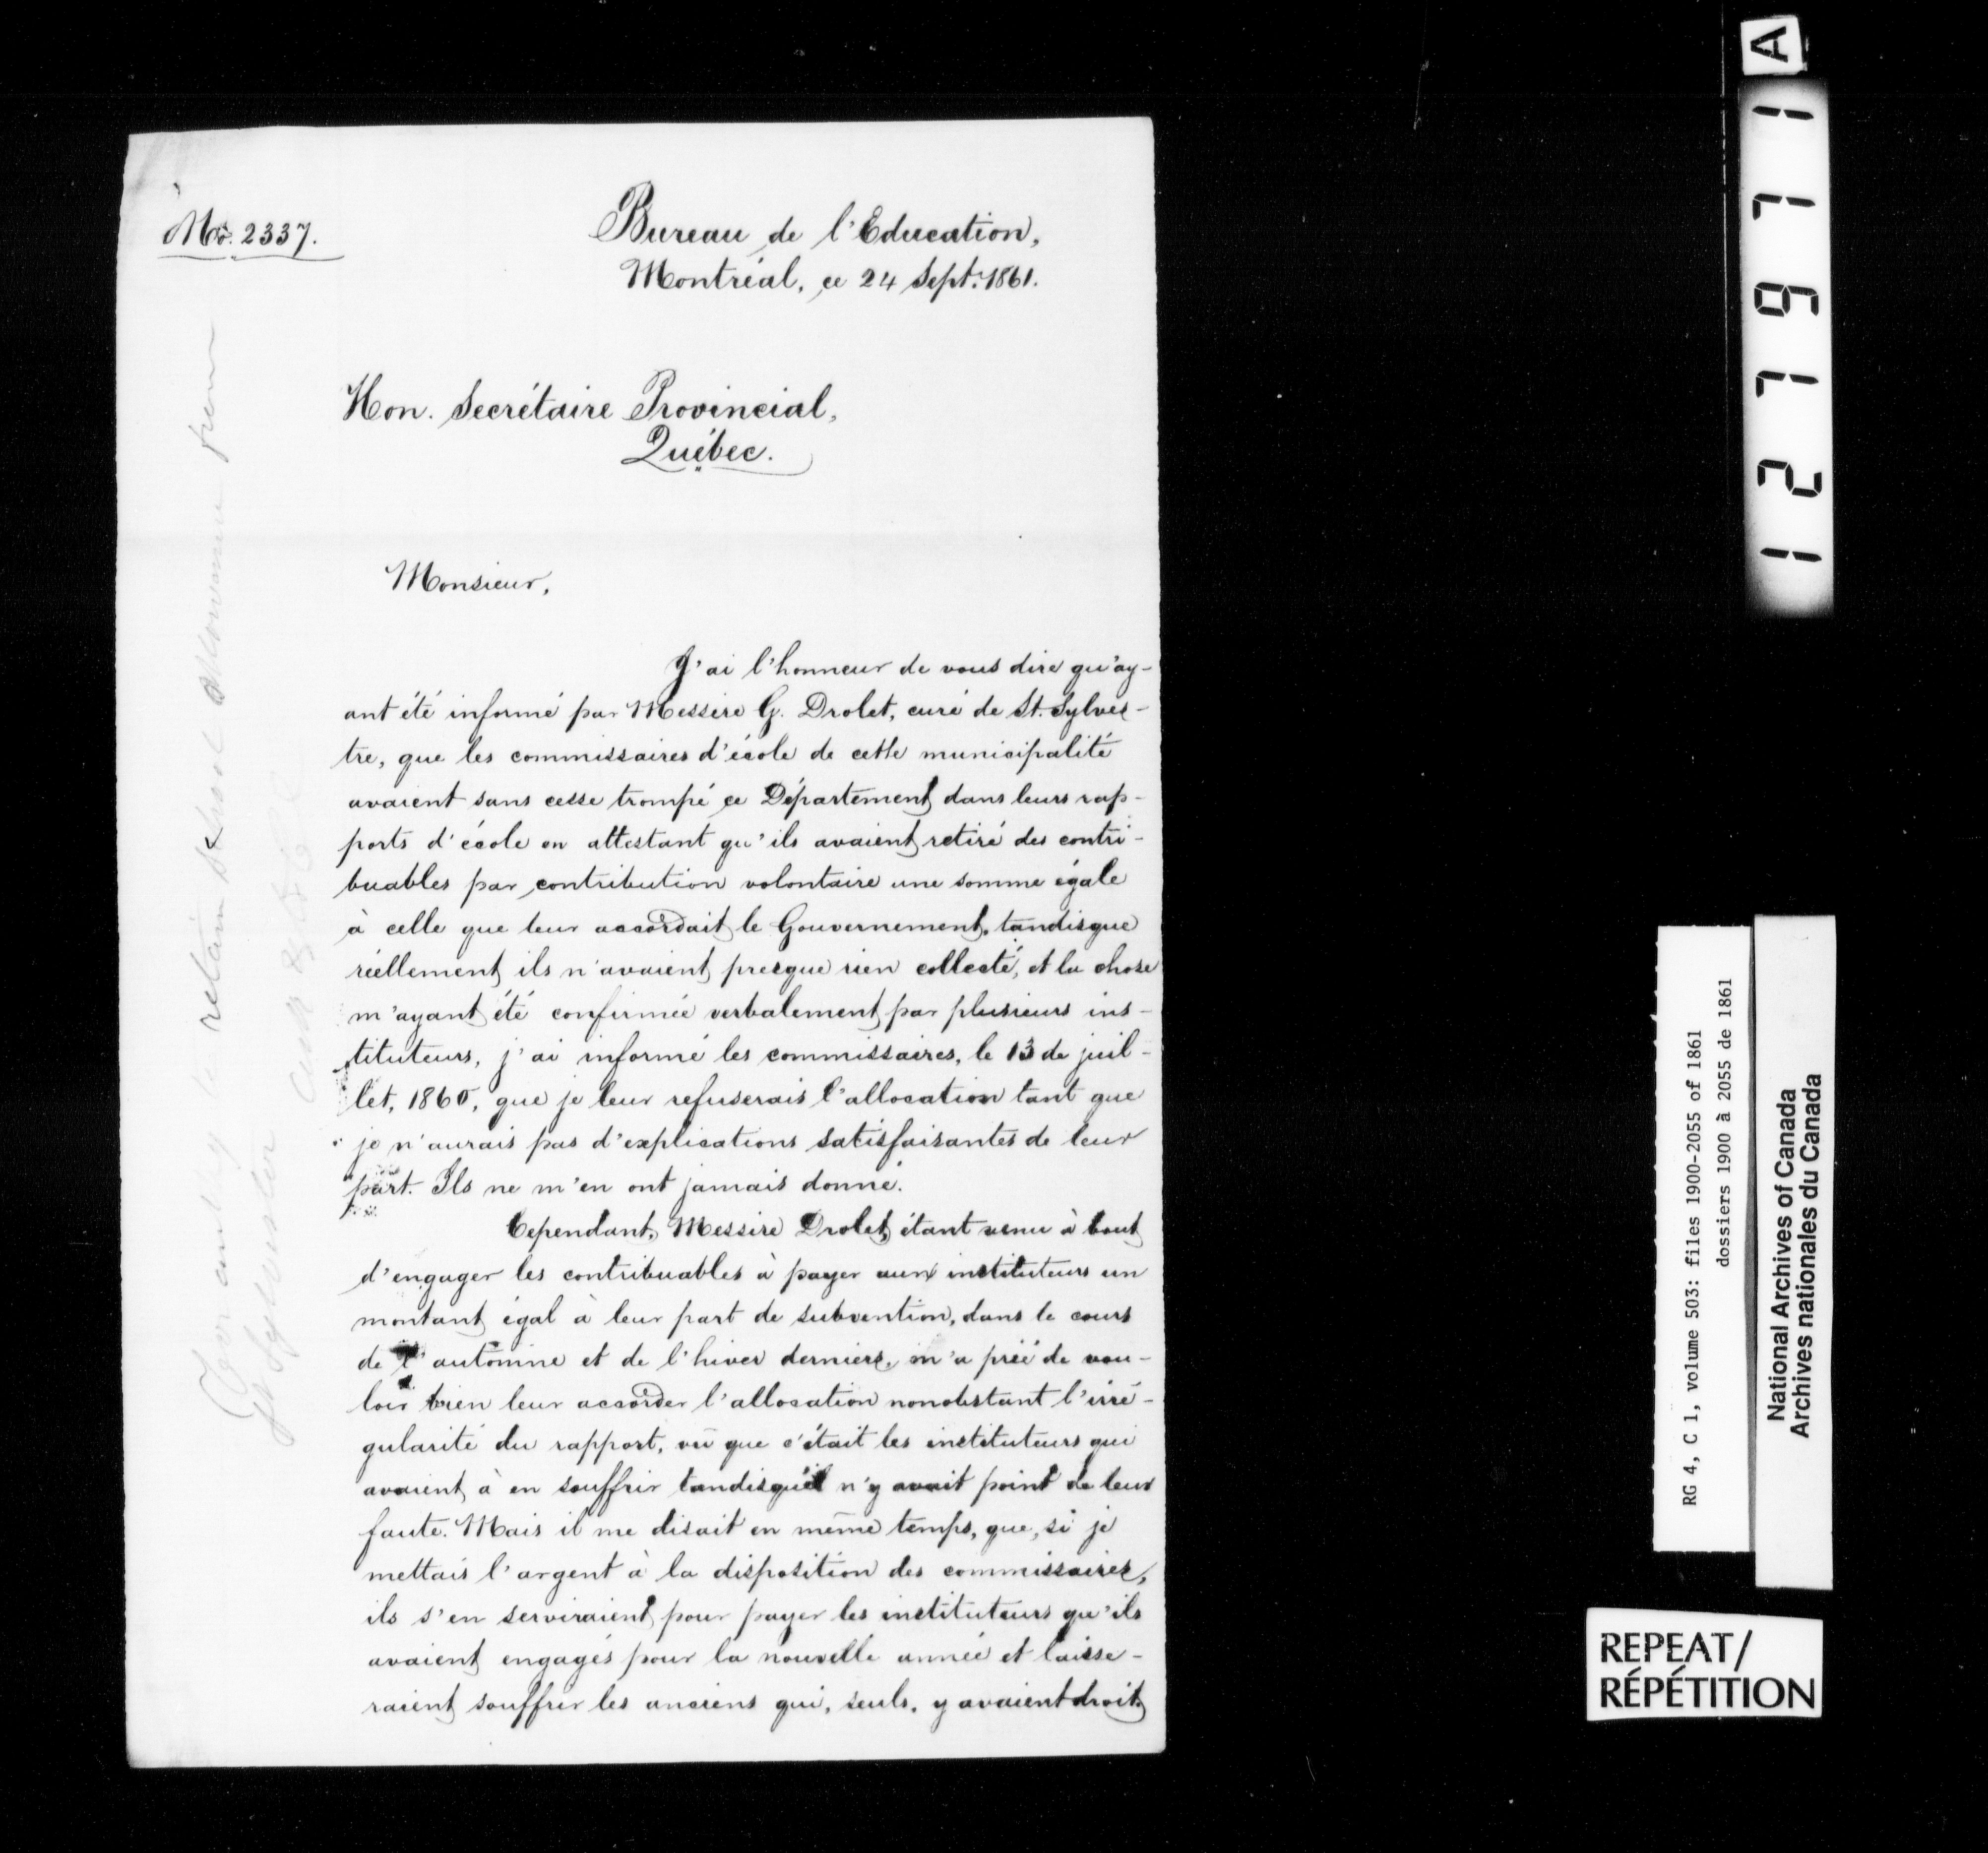 No. 2337.
Bureau de l'Education,
Montréal, ce 24 Sept. 1861.
Hon. Secrétaire Provincial,
Québec.
Monsieur,
J'ai l'honneur de vous dire qu'ay-
ant été informé par Messire G. Drolet, curé de St. Sylves-
tre, que les commissaires d'école de cette municipalité
avaient sans cesse trompé ce Département dans leurs rap-
ports d'école en attestant qu'ils avaient retiré des contri-
buables par contribution volontaire une somme égale
à celle que leur accordait le Gouvernement, tandisque
réellement ils n'avaient presque rien collecté, et la chose
m'ayant été confirmée verbalement par plusieurs ins-
tituteurs, j'ai informé les commissaires, le 13 de juil-
let, 1860, que je leur refuserais l'allocation tant que
je n'aurais pas d'explications satisfaisantes de leur
part. Ils ne m'en ont jamais donné.
Cependant, Messire Drolet, étant venu à bout
d'engager les contribuables à payer aux instituteurs un
montant égal à leur part de subvention, dans le cours
de l'automne et de l'hiver derniers, m'a prié de vou-
loir bien leur accorder l'allocation nonobstant l'irré-
gularité du rapport, vû que c'était les instituteurs qui
avaient à en souffrir tandisqu'il n'y avait point de leur
faute. Mais il me disait en même temps, que, si je
mettais l'argent à la disposition des commissaires,
ils s'en serviraient pour payer les instituteurs qu'ils
avaient engagés pour la nouvelle année et laisse-
raient souffrir les anciens qui, seuls, y avaient droit.
127971
A
RG 4, C 1, volume 503: files 1900-2055 of 1861
dossiers 1900 à 2055 de 1861
National Archives of Canada
Archives nationales du Canada
REPEAT/
RÉPÉTITION